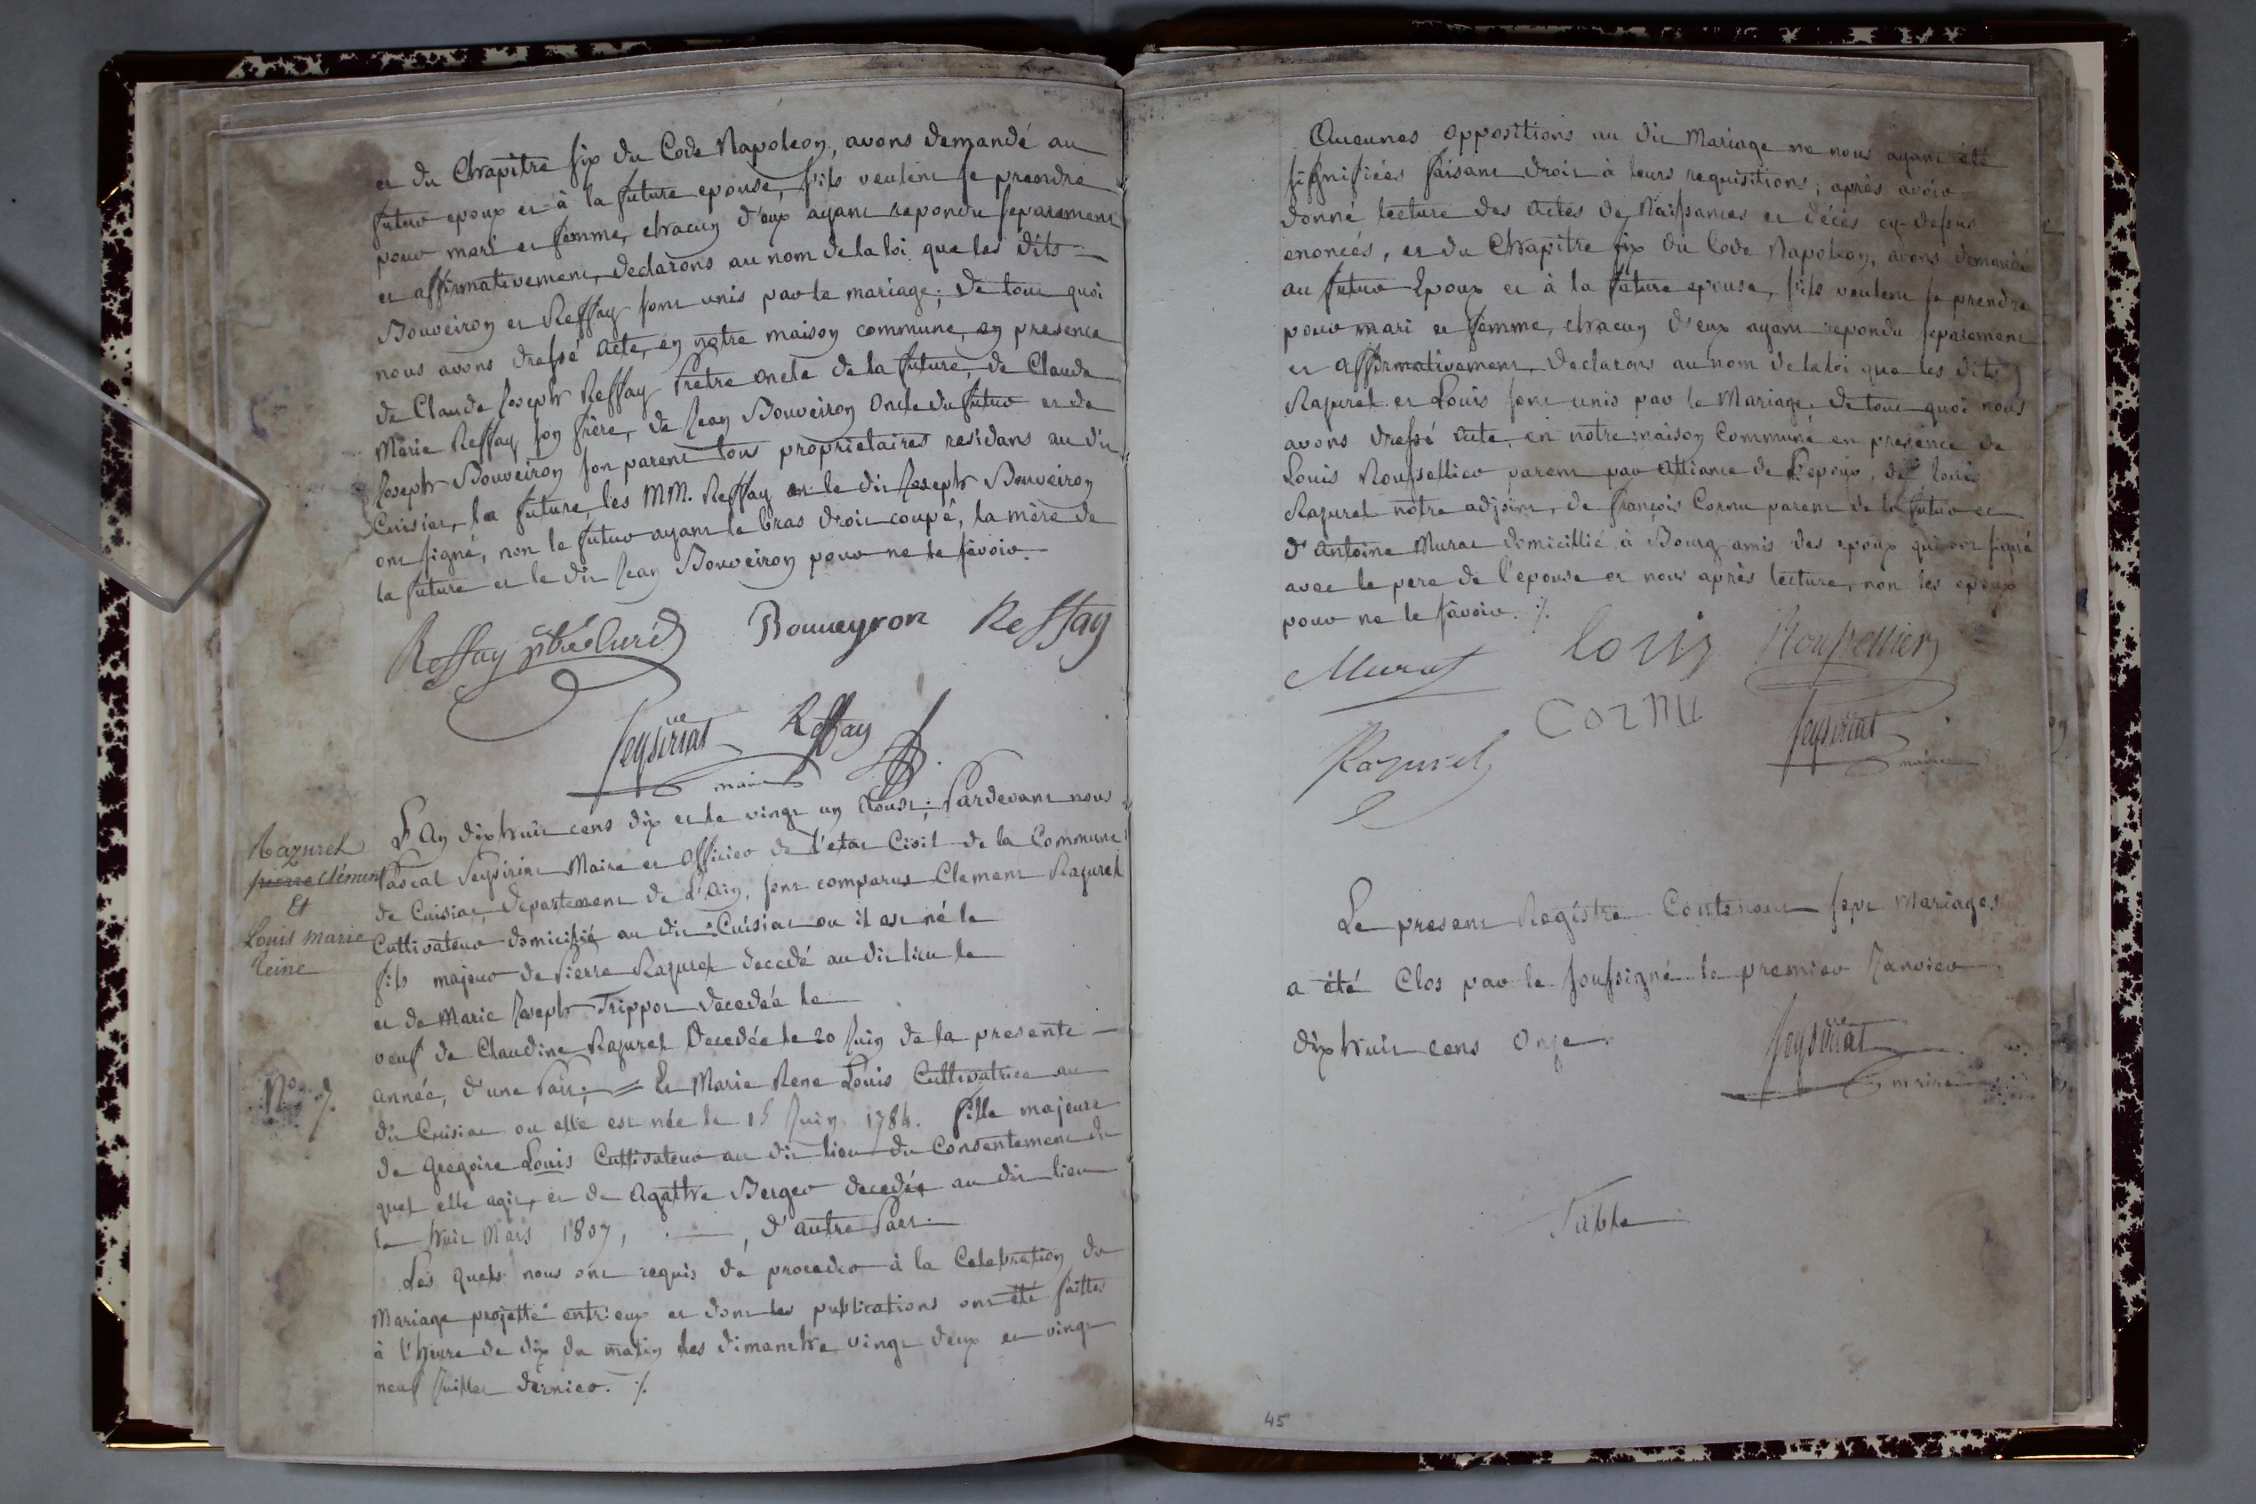 et du Chapitre six du Code Napoleon, avons demandé au
futur epoux et à la future epouse, s'ils veulent se prendre
pour mari et femme, chacun d'eux ayant repondu separement
et affirmativement, declarons au nom de la loi que les dits
Bouveiron et Reffay sont unis par le mariage; de tout quoi
nous avons dressé acte, en notre maison commune, en presence
de Claude Joseph Reffay Pretre oncle de la future, de Claude
Marie Reffay son frère, de Jean Bouveiron Oncle du futur et de
Joseph Bouveiron son parent tous proprietaires residans au dit
Cuisiat, la future les MM. Reffay et le dit Joseph Bouveiron
ont signé, non le futur ayant le bras droit coupé, la mère de
la future et le dit Jean Bouveiron pour ne le sçavoir.
Reffay ptre Curé Bouueyron Reffay
Peysiriat Reffay
maire
Razurel
pierre Clément
Et
Louis marie
Reine
N° 7.
L'An dix huit cens dix et le vingt un Aoust; Pardevant nous
Pascal Peysiriat Maire et Officier de l'etat Civil de la Commune
de Cuisiat, departement de l'Ain, sont comparus Clement Razurel
Cultivateur domicilié au dit Cuisiat ou il est né le
fils majeur de Pierre Razurel decedé au dit lieu le
et de Marie Joseph Frippot decedée le
veuf de Claudine Razurel Decedée le 20 Juin de la presente
année, d'une Part; = Et Marie Rene Louis Cultivatrice au
dit Cuisiat ou elle est née le 15 Juin 1784. fille majeure
de Gregoire Louis Cultivateur au dit lieu du Consentement du
quel elle agit, et de Agathe Berger decedée au dit lieu
le huit Mars 1807, , d'autre Part.
Les quels nous ont requis de proceder à la Celebration du
Mariage projetté entr'eux et dont les publications ont été faittes
à l'heure de dix du matin les dimanche vingt deux et vingt
neuf Juillet dernier. ./.
Aucunes oppositions au dit Mariage ne nous ayant été
signifiées faisant droit à leurs requisitions; après avoir
donné lecture des actes de Naissances et décès cy-dessus
enoncés, et du Chapitre six du Code Napoleon, avons demandé
au futur Epoux et à la future epouse, s'ils veulent se prendre
pour mari et femme, chacun d'eux ayant repondu separement
et affirmativement, Declarons au nom de la loi que les dits
Razurel et Louis sont unis par le Mariage. De tout quoi nous
avons dressé acte, en notre maison Commune en presence de
Louis Roussellier parent par Alliance de l'epoux, de Louis
Razurel notre adjoint, de françois Cornu parent de la futur et
d'Antoine Murat domicillié à Bourg amis des epoux qui ont signé
avec le pere de l'epouse et nous après lecture, non les epoux
pour ne le sçavoir. ./.
Murat Louis Rousellier
Cornu
Razurel Peysiriat
maire
Le present Registre Contenant sept Mariages
a été Clos par le soussigné le premier Janvier
dix huit cens Onze.
Peysiriat
maire
Table
45